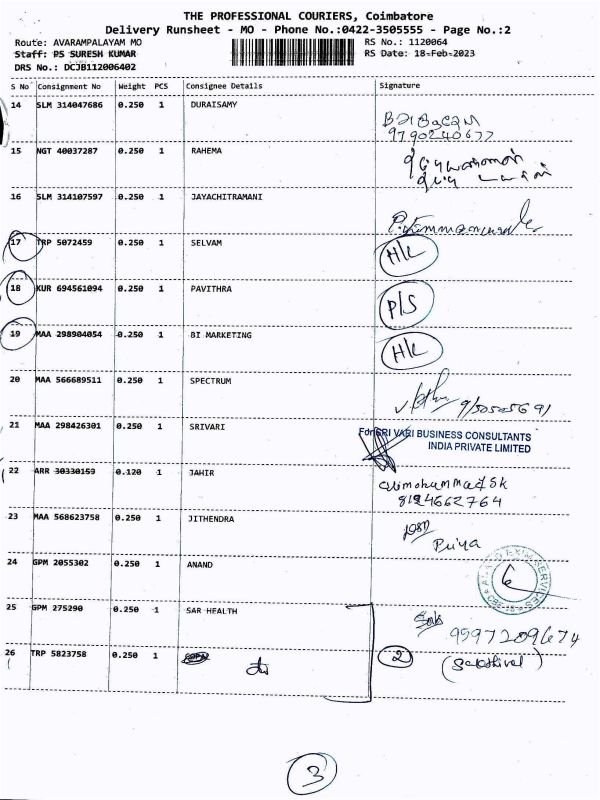 THE PROFESSIONAL COURIERS, Coimbatore
Delivery Runsheet - MO - Phone No.:0422-3505555 - Page No.:2
Route: AVARAMPALAYAM MO
RS No.: 1120064
Staff: PS SURESH KUMAR
RS Date: 18-Feb-2023
DRS No.: DCJB112006402
S No Consignment No Weight PCS Consignee Details Signature
14 SLM 314047686 0.250 1 DURAISAMY
9790240677
15 NGT 40037287 0.250 1 RAHEMA
16 SLM 314107597 0.250 1 JAYACHITRAMANI
17 TRP 5072459 0.250 1 SELVAM H/L
18 KUR 694561094 0.250 1 PAVITHRA P/S
19 MAA 298904054 0.250 1 BI MARKETING H/L
20 MAA 566689511 0.250 1 SPECTRUM
21 MAA 298426301 0.250 1 SRIVARI
For SRI VARI BUSINESS CONSULTANTS
INDIA PRIVATE LIMITED
22 ARR 30330159 0.120 1 JAHIR
8124662764
23 MAA 568623758 0.250 1 JITHENDRA
Priya
24 GPM 2055302 0.250 1 ANAND
EXIM SERVICES
25 GPM 275290 0.250 1 SAR HEALTH
9597209674
26 TRP 5823758 0.250 1
2
(Sakthivel)
3